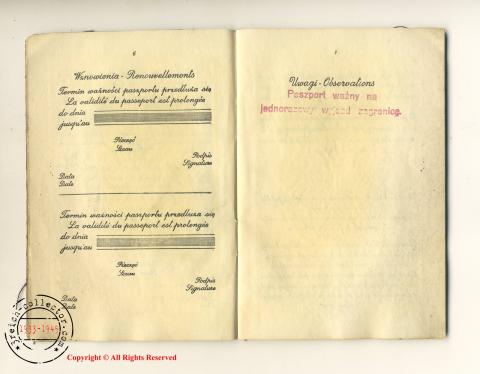 6
Wznowienia - Renouvellements
Termin ważności paszportu przedłuża się
La validité du passeport est prolongée
do dnia
jusqu'au
Pieczęć
Sceau
Podpis
Signature
Data
Date
Termin ważności paszportu przedłuża się
La validité du passeport est prolongée
do dnia
jusqu'au
Pieczęć
Sceau
Podpis
Signature
Data
Date
Uwagi - Observations
Paszport ważny na
jednorazowy wyjazd zagranicę.
3reich-collector.com
1933-1945
Copyright © All Rights Reserved